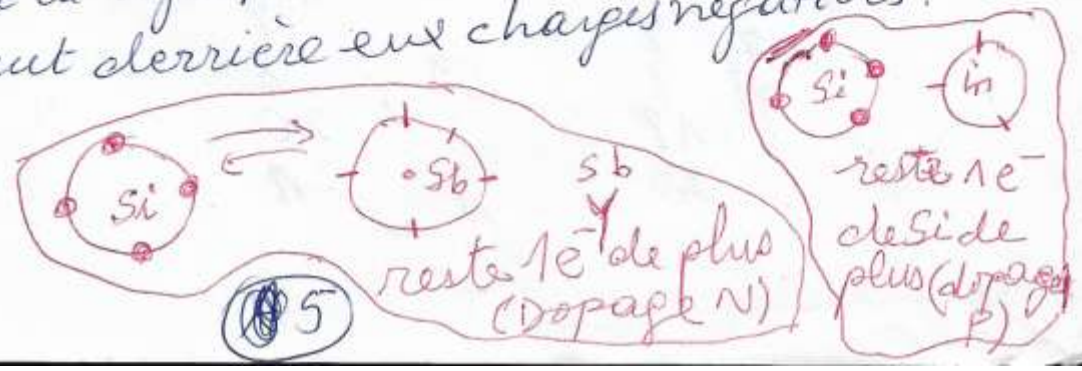 derrière eux charges négatives.
Si
Sb
Sb
reste 1e⁻ de plus
(Dopage N)
5
Si
in
reste 1e⁻
de Si de
plus (dopage
P)